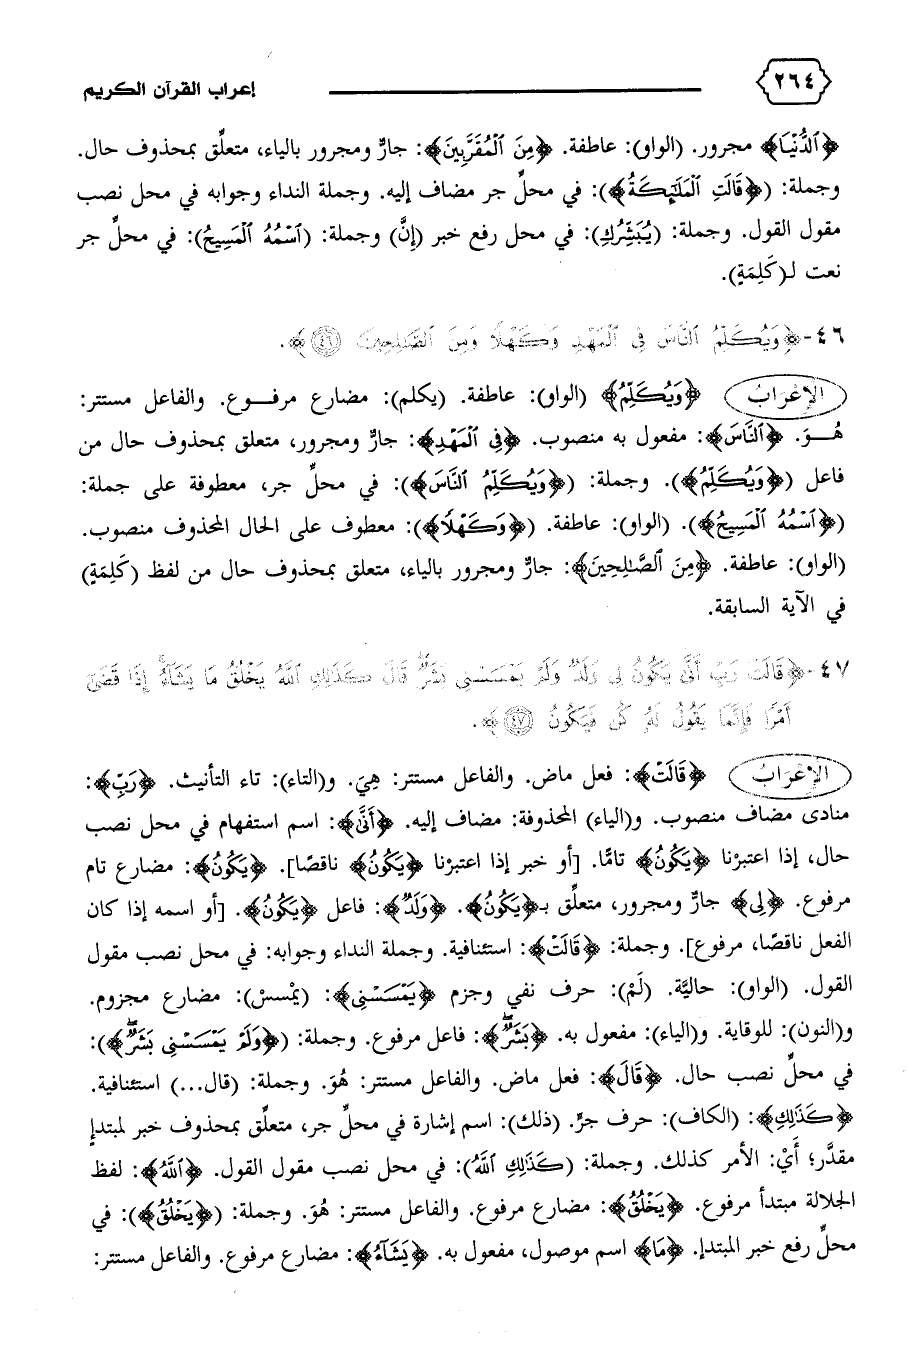 ٢٦٤ إعراب القرآن الكريم
﴿ٱلدُّنْيَا﴾ مجرور. (الواو): عاطفة. ﴿مِنَ ٱلْمُقَرَّبِينَ﴾: جارٌّ ومجرور بالياء، متعلِّق بمحذوف حال.
وجملة: (﴿قَالَتِ ٱلْمَلَٰٓئِكَةُ﴾): في محلِّ جر مضاف إليه. وجملة النداء وجوابه في محل نصب
مقول القول. وجملة: (يُبَشِّرُكِ): في محل رفع خبر (إنَّ) وجملة: (ٱسْمُهُ ٱلْمَسِيحُ): في محلِّ جر
نعت لـ(كَلِمَةٍ).
٤٦-﴿وَيُكَلِّمُ ٱلنَّاسَ فِى ٱلْمَهْدِ وَكَهْلًا وَمِنَ ٱلصَّٰلِحِينَ ٤٦﴾.
الإعْرَابُ ﴿وَيُكَلِّمُ﴾ (الواو): عاطفة. (يكلم): مضارع مرفوع. والفاعل مستتر:
هُوَ. ﴿ٱلنَّاسَ﴾: مفعول به منصوب. ﴿فِى ٱلْمَهْدِ﴾: جارٌّ ومجرور، متعلق بمحذوف حال من
فاعل (﴿وَيُكَلِّمُ﴾). وجملة: (﴿وَيُكَلِّمُ ٱلنَّاسَ﴾): في محلِّ جر، معطوفة على جملة:
(﴿ٱسْمُهُ ٱلْمَسِيحُ﴾). (الواو): عاطفة. (﴿وَكَهْلًا﴾): معطوف على الحال المحذوف منصوب.
(الواو): عاطفة. ﴿مِنَ ٱلصَّٰلِحِينَ﴾: جارٌّ ومجرور بالياء، متعلق بمحذوف حال من لفظ (كَلِمَةٍ)
في الآية السابقة.
٤٧-﴿قَالَتْ رَبِّ أَنَّىٰ يَكُونُ لِى وَلَدٌ وَلَمْ يَمْسَسْنِى بَشَرٌ ۖ قَالَ كَذَٰلِكِ ٱللَّهُ يَخْلُقُ مَا يَشَآءُ ۚ إِذَا قَضَىٰٓ
أَمْرًا فَإِنَّمَا يَقُولُ لَهُۥ كُن فَيَكُونُ ٤٧﴾.
الإعْرَابُ ﴿قَالَتْ﴾: فعل ماض. والفاعل مستتر: هِيَ. و(التاء): تاء التأنيث. ﴿رَبِّ﴾:
منادى مضاف منصوب. و(الياء) المحذوفة: مضاف إليه. ﴿أَنَّىٰ﴾: اسم استفهام في محل نصب
حال، إذا اعتبرْنا ﴿يَكُونُ﴾ تامًّا. [أو خبر إذا اعتبرنا ﴿يَكُونُ﴾ ناقصًا]. ﴿يَكُونُ﴾: مضارع تام
مرفوع. ﴿لِى﴾ جارٌّ ومجرور، متعلِّق بـ﴿يَكُونُ﴾. ﴿وَلَدٌ﴾: فاعل ﴿يَكُونُ﴾. [أو اسمه إذا كان
الفعل ناقصًا، مرفوع]. وجملة: ﴿قَالَتْ﴾: استئنافية. وجملة النداء وجوابه: في محل نصب مقول
القول. (الواو): حاليَّة. (لَمْ): حرف نفي وجزم ﴿يَمْسَسْنِى﴾: (يمْسسْ): مضارع مجزوم.
و(النون): للوقاية. و(الياء): مفعول به. ﴿بَشَرٌ ۖ﴾: فاعل مرفوع. وجملة: (﴿وَلَمْ يَمْسَسْنِى بَشَرٌ ۖ﴾):
في محلِّ نصب حال. ﴿قَالَ﴾: فعل ماض. والفاعل مستتر: هُوَ. وجملة: (قال...) استئنافية.
﴿كَذَٰلِكِ﴾: (الكاف): حرف جرٍّ. (ذلك): اسم إشارة في محلِّ جر، متعلِّق بمحذوف خبر لمبتدإ
مقدَّر؛ أَيْ: الأمر كذلك. وجملة: (كَذَٰلِكِ ٱللَّهُ): في محل نصب مقول القول. ﴿ٱللَّهُ﴾: لفظ
الجلالة مبتدأ مرفوع. ﴿يَخْلُقُ﴾: مضارع مرفوع. والفاعل مستتر: هُوَ. وجملة: (﴿يَخْلُقُ﴾): في
محلِّ رفع خبر المبتدإ. ﴿مَا﴾ اسم موصول، مفعول به. ﴿يَشَآءُ﴾: مضارع مرفوع. والفاعل مستتر: